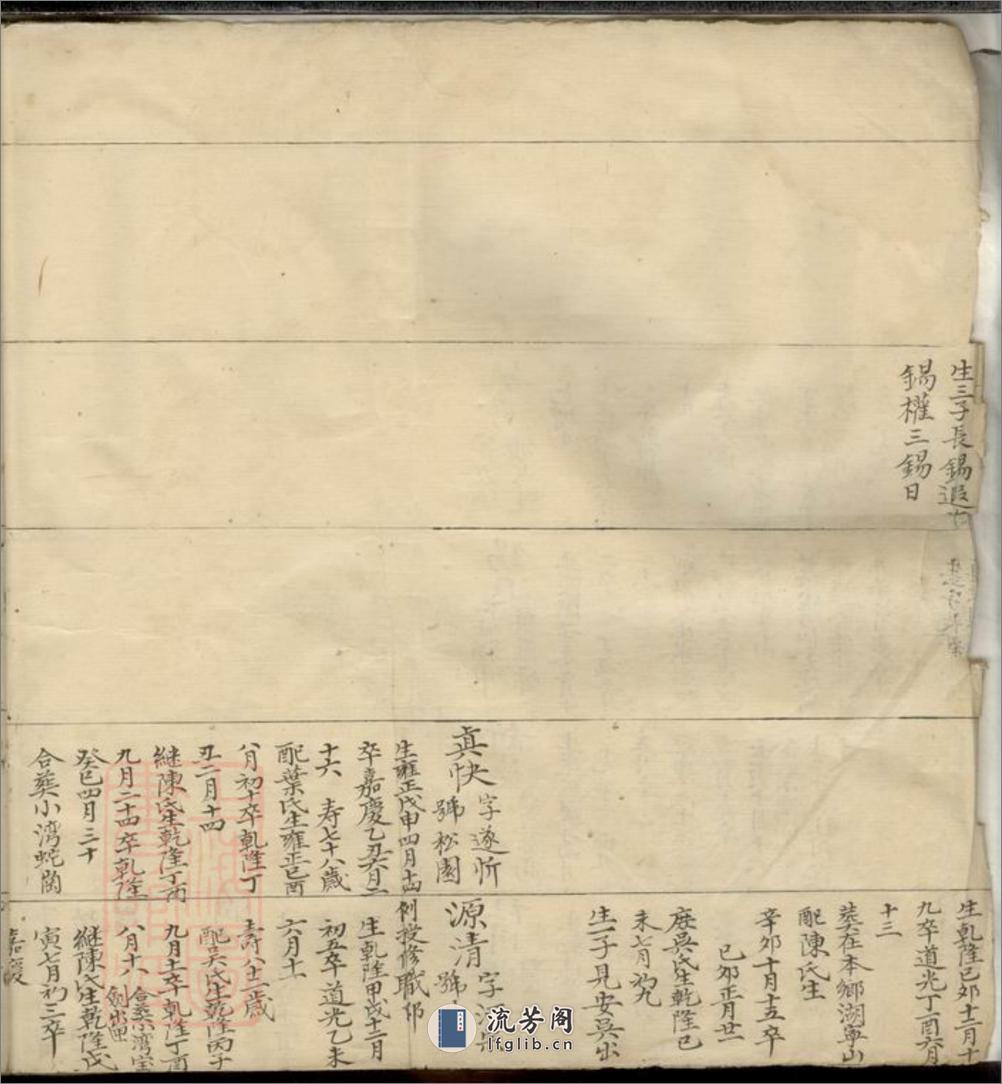 生三子長錫遐
錫權三錫日
真快字遂忻
號松園
生雍正戊申四月十四
卒嘉慶乙丑六月二
十六 寿七十八歲
配葉氏生雍正己酉
八月初十卒乾隆丁
丑二月十四
継陳氏生乾隆丁丙
九月二十四卒乾隆
癸巳四月三十
合葬小湾蛇崗
生乾隆己卯十二月十
九卒道光丁酉六月
十三
葬在本鄉湖寧山
配陳氏生
辛卯十月十五卒
己卯正月廿一
庶吳氏生乾隆己
未七月初九
生一子見安吳出
源清字
號
例授修職郎
生乾隆甲戌十二月
初五卒道光乙未
六月十一
壽八十二歲
配吴氏生乾隆丙子
九月十二卒乾隆丁酉
八月十六 合葬小湾宝
劍出匣
継陳氏生乾隆戊
寅七月初三卒
嘉慶
流芳阁
lfglib.cn